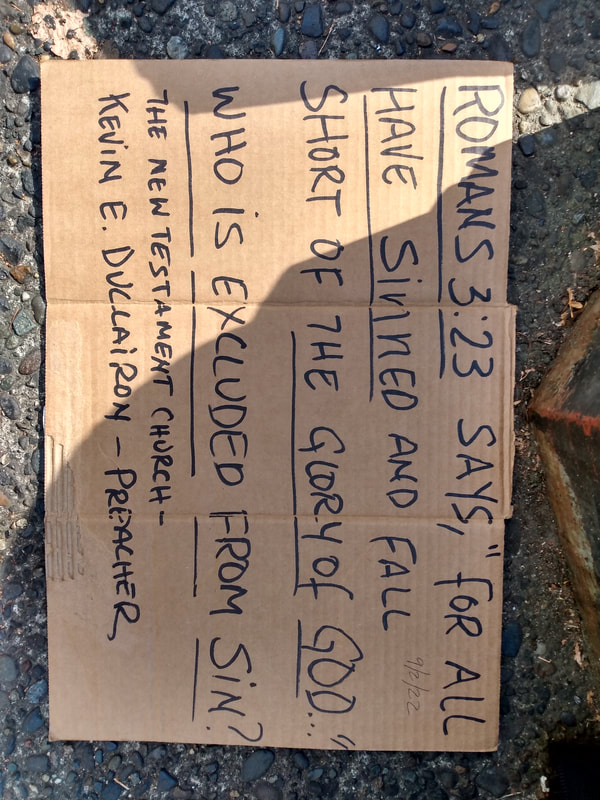 ROMANS 3:23 SAYS, "FOR ALL
HAVE SINNED AND FALL
9/2/22
SHORT OF THE GLORY OF GOD..."
WHO IS EXCLUDED FROM SIN?
THE NEW TESTAMENT CHURCH-
KEVIN E. DULLAIRON - PREACHER,